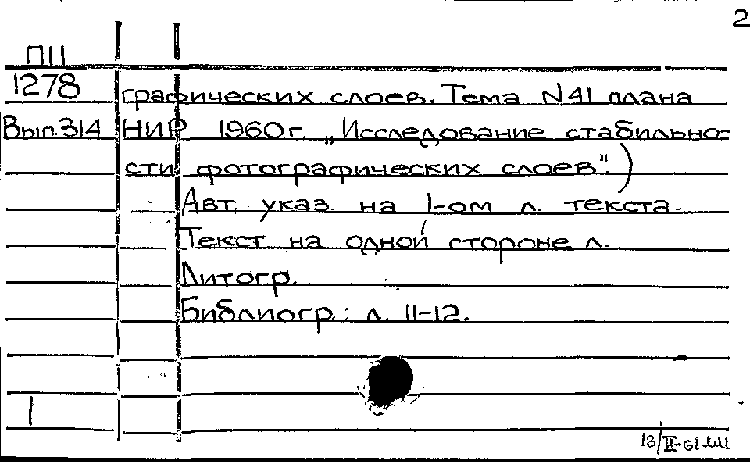 2
П11
1278 графических слоев. Тема N41 плана
Вып.314 НИР 1960г. „Исследование стабильно-
сти фотографических слоев".)
Авт. указ. на 1-ом л. текста.
Текст на одной стороне л.
Литогр.
Библиогр.: л. 11-12.
1